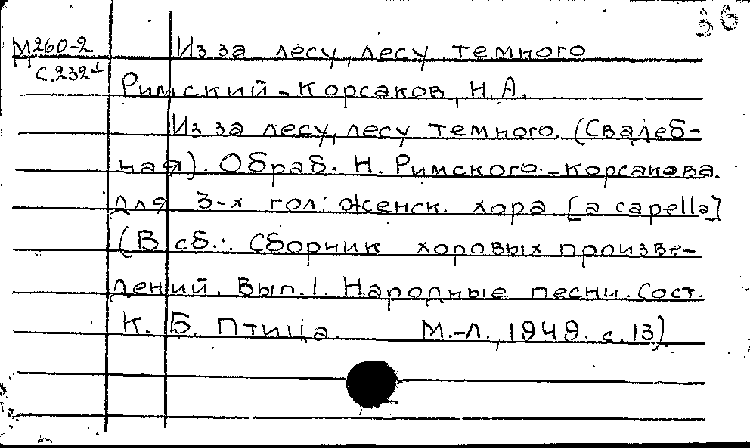 36
М260-2 Из за лесу, лесу темного
с.232
Римский-Корсаков, Н.А.
Из за лесу, лесу темного. (Свадеб-
ная). Обраб. Н. Римского-Корсакова.
для 3-х гол. женск. хора [a capella]
(В сб.: Сборник хоровых произве-
дений. Вып.1. Народные песни. Сост.
К. Б. Птица. М.-Л., 1949. с.13)